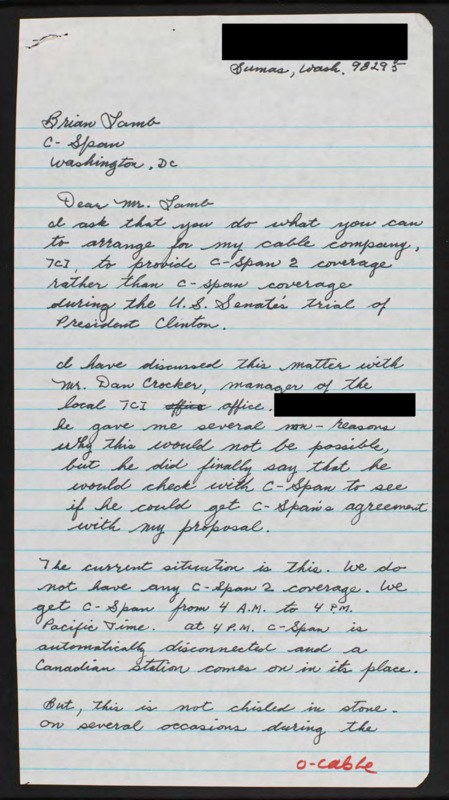 Sumas, Wash. 98295
Brian Lamb
C-Span
Washington, DC
Dear Mr. Lamb
I ask that you do what you can
to arrange for my cable company,
TCI, to provide C-Span 2 coverage
rather than C-Span coverage
during the U.S. Senate's trial of
President Clinton.
I have discussed this matter with
Mr. Dan Crocker, manager of the
local TCI office office.
he gave me several non-reasons
why this would not be possible,
but he did finally say that he
would check with C-Span to see
if he could get C-Span's agreement
with my proposal.
The current situation is this. We do
not have any C-Span 2 coverage. We
get C-Span from 4 A.M. to 4 P.M.
Pacific Time. At 4 P.M. C-Span is
automatically disconnected and a
Canadian Station comes on in its place.
But, this is not chisled in stone.
On several occasions during the
O-cable